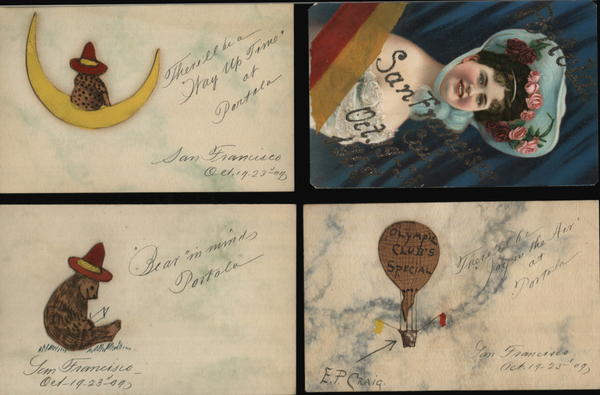 There'll be a
"Way Up Time"
at
Portola
San Francisco
Oct. 19-23rd 09
San F
Oct.
"Bear" in mind
Portola
San Francisco
Oct-19-23rd 09
OLYMPIC
CLUB'S
SPECIAL
There'll be
"Joy in the Air"
at
Portola
San Francisco
Oct. 19-23rd 09
E.P. Craig.